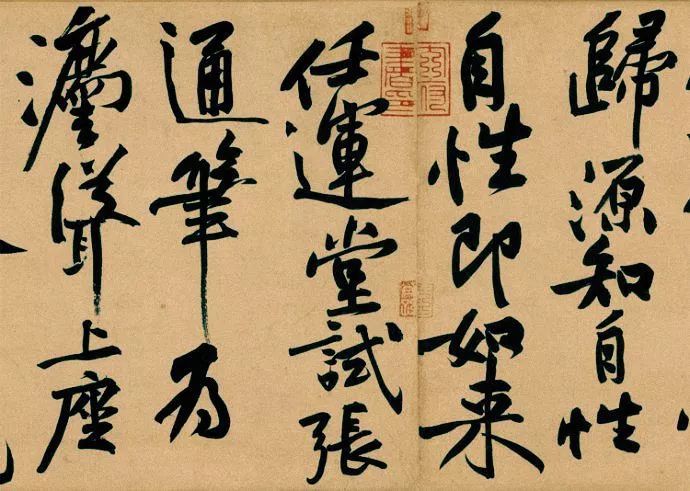 歸源知自性
自性即如來
任運堂試張
通筆為
灋聳上座